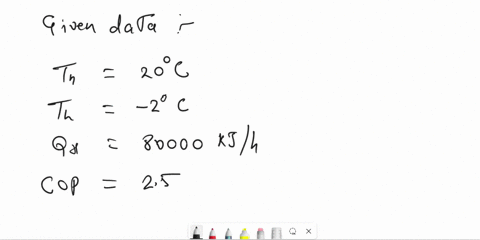 Given data :-
Th = 20°C
Th = -2° C
QH = 80000 KJ/h
COP = 2.5